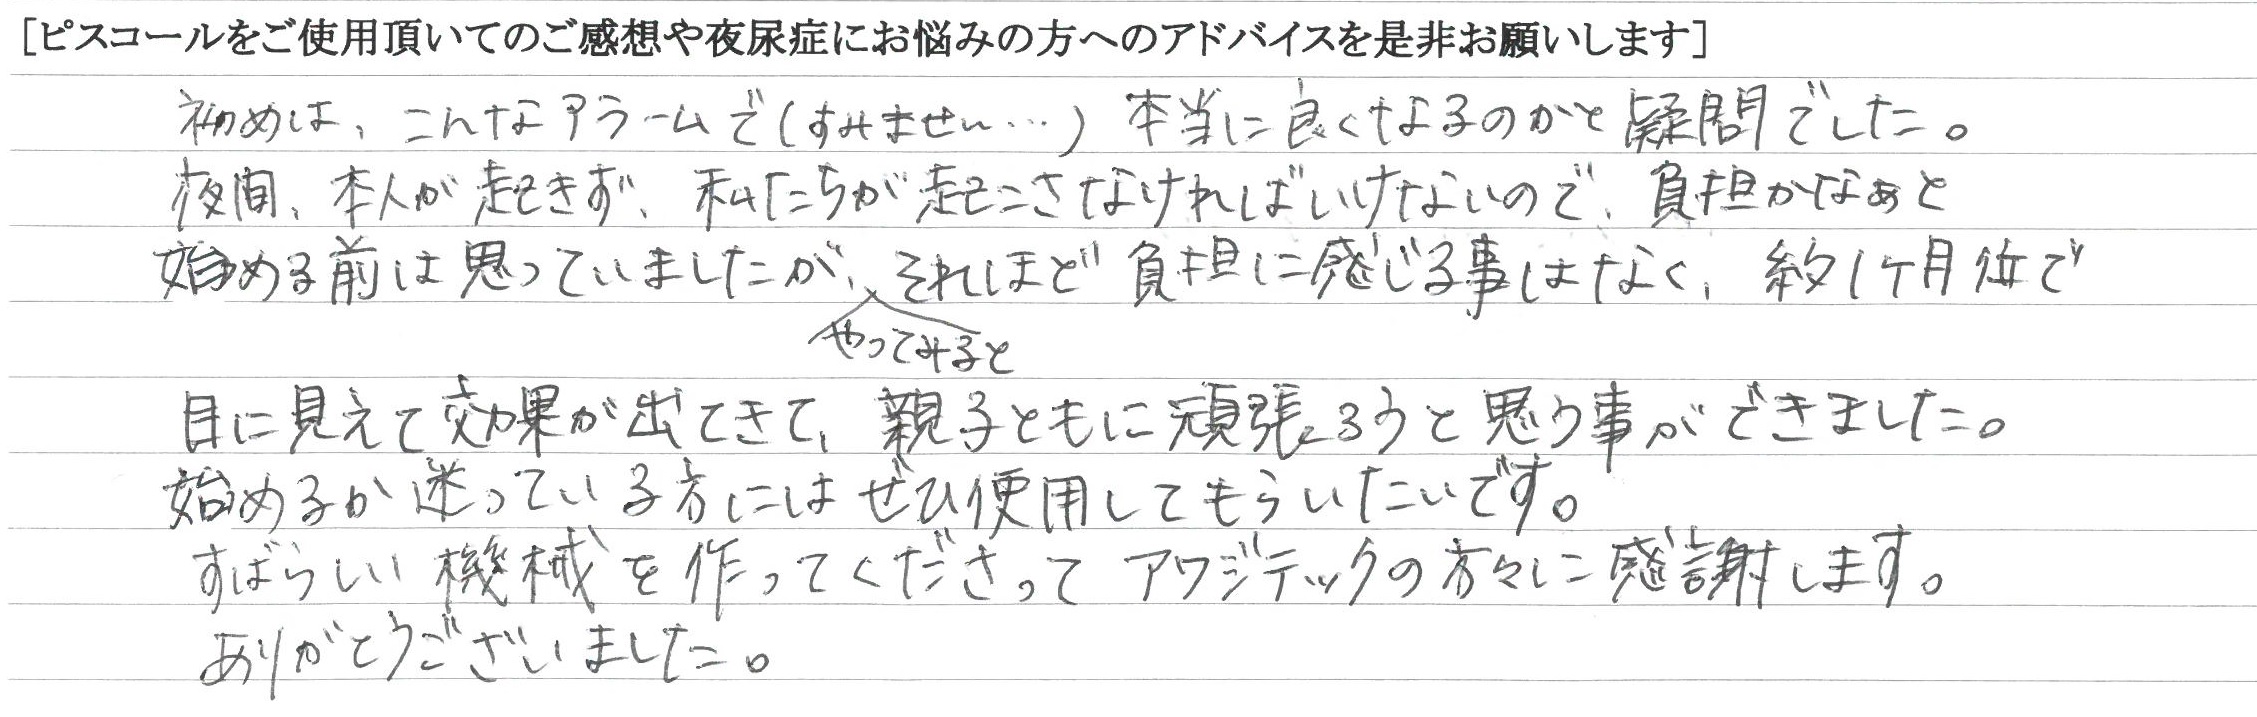 [ピスコールをご使用頂いてのご感想や夜尿症にお悩みの方へのアドバイスを是非お願いします]
初めは、こんなアラームで(すみません…) 本当に良くなるのかと疑問でした。
夜間、本人が起きず、私たちが起こさなければいけないので、負担かなぁと
始める前は思っていましたが、それほど負担に感じる事はなく、約1ヶ月位で
やってみると
目に見えて効果が出てきて、親子ともに頑張ろうと思う事ができました。
始めるか迷っている方にはぜひ使用してもらいたいです。
すばらしい機械を作ってくださってアワジテックの方々に感謝します。
ありがとうございました。